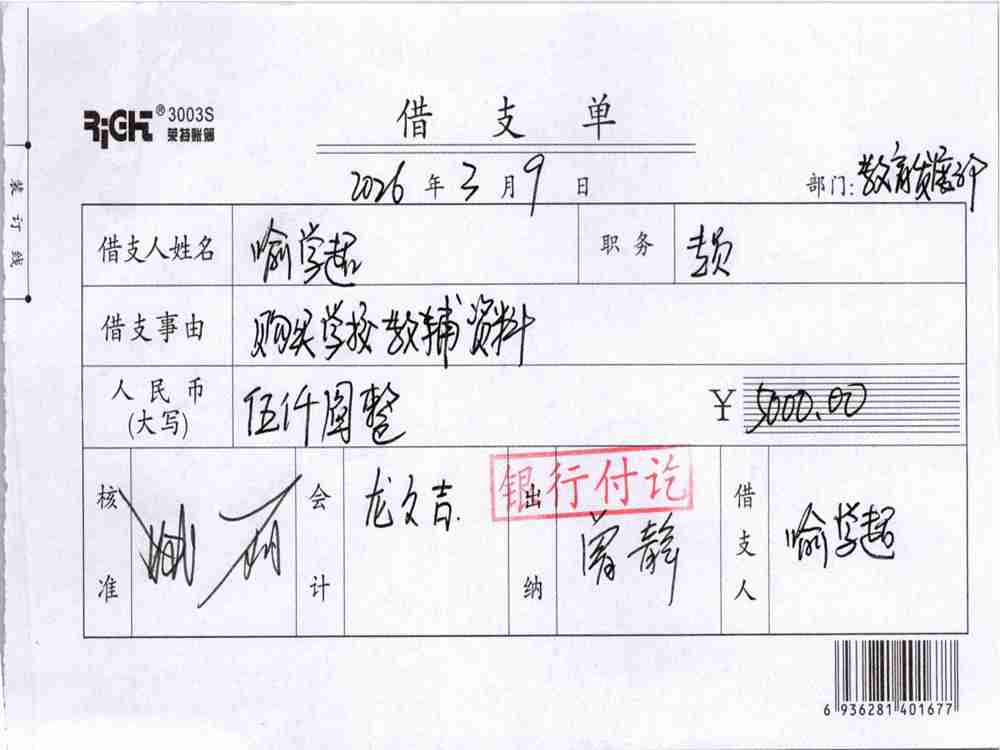 RiGHT® 3003S
莱特账簿
借支单
2026年3月9日
部门:教育发展部
装订线
借支人姓名 喻学超 职务 专员
借支事由 购买学校教辅资料
人民币(大写) 伍仟圆整 ¥5000.00
核准
会计 龙文吉.
出纳 静
银行付讫
借支人 喻学超
6 936281 401677